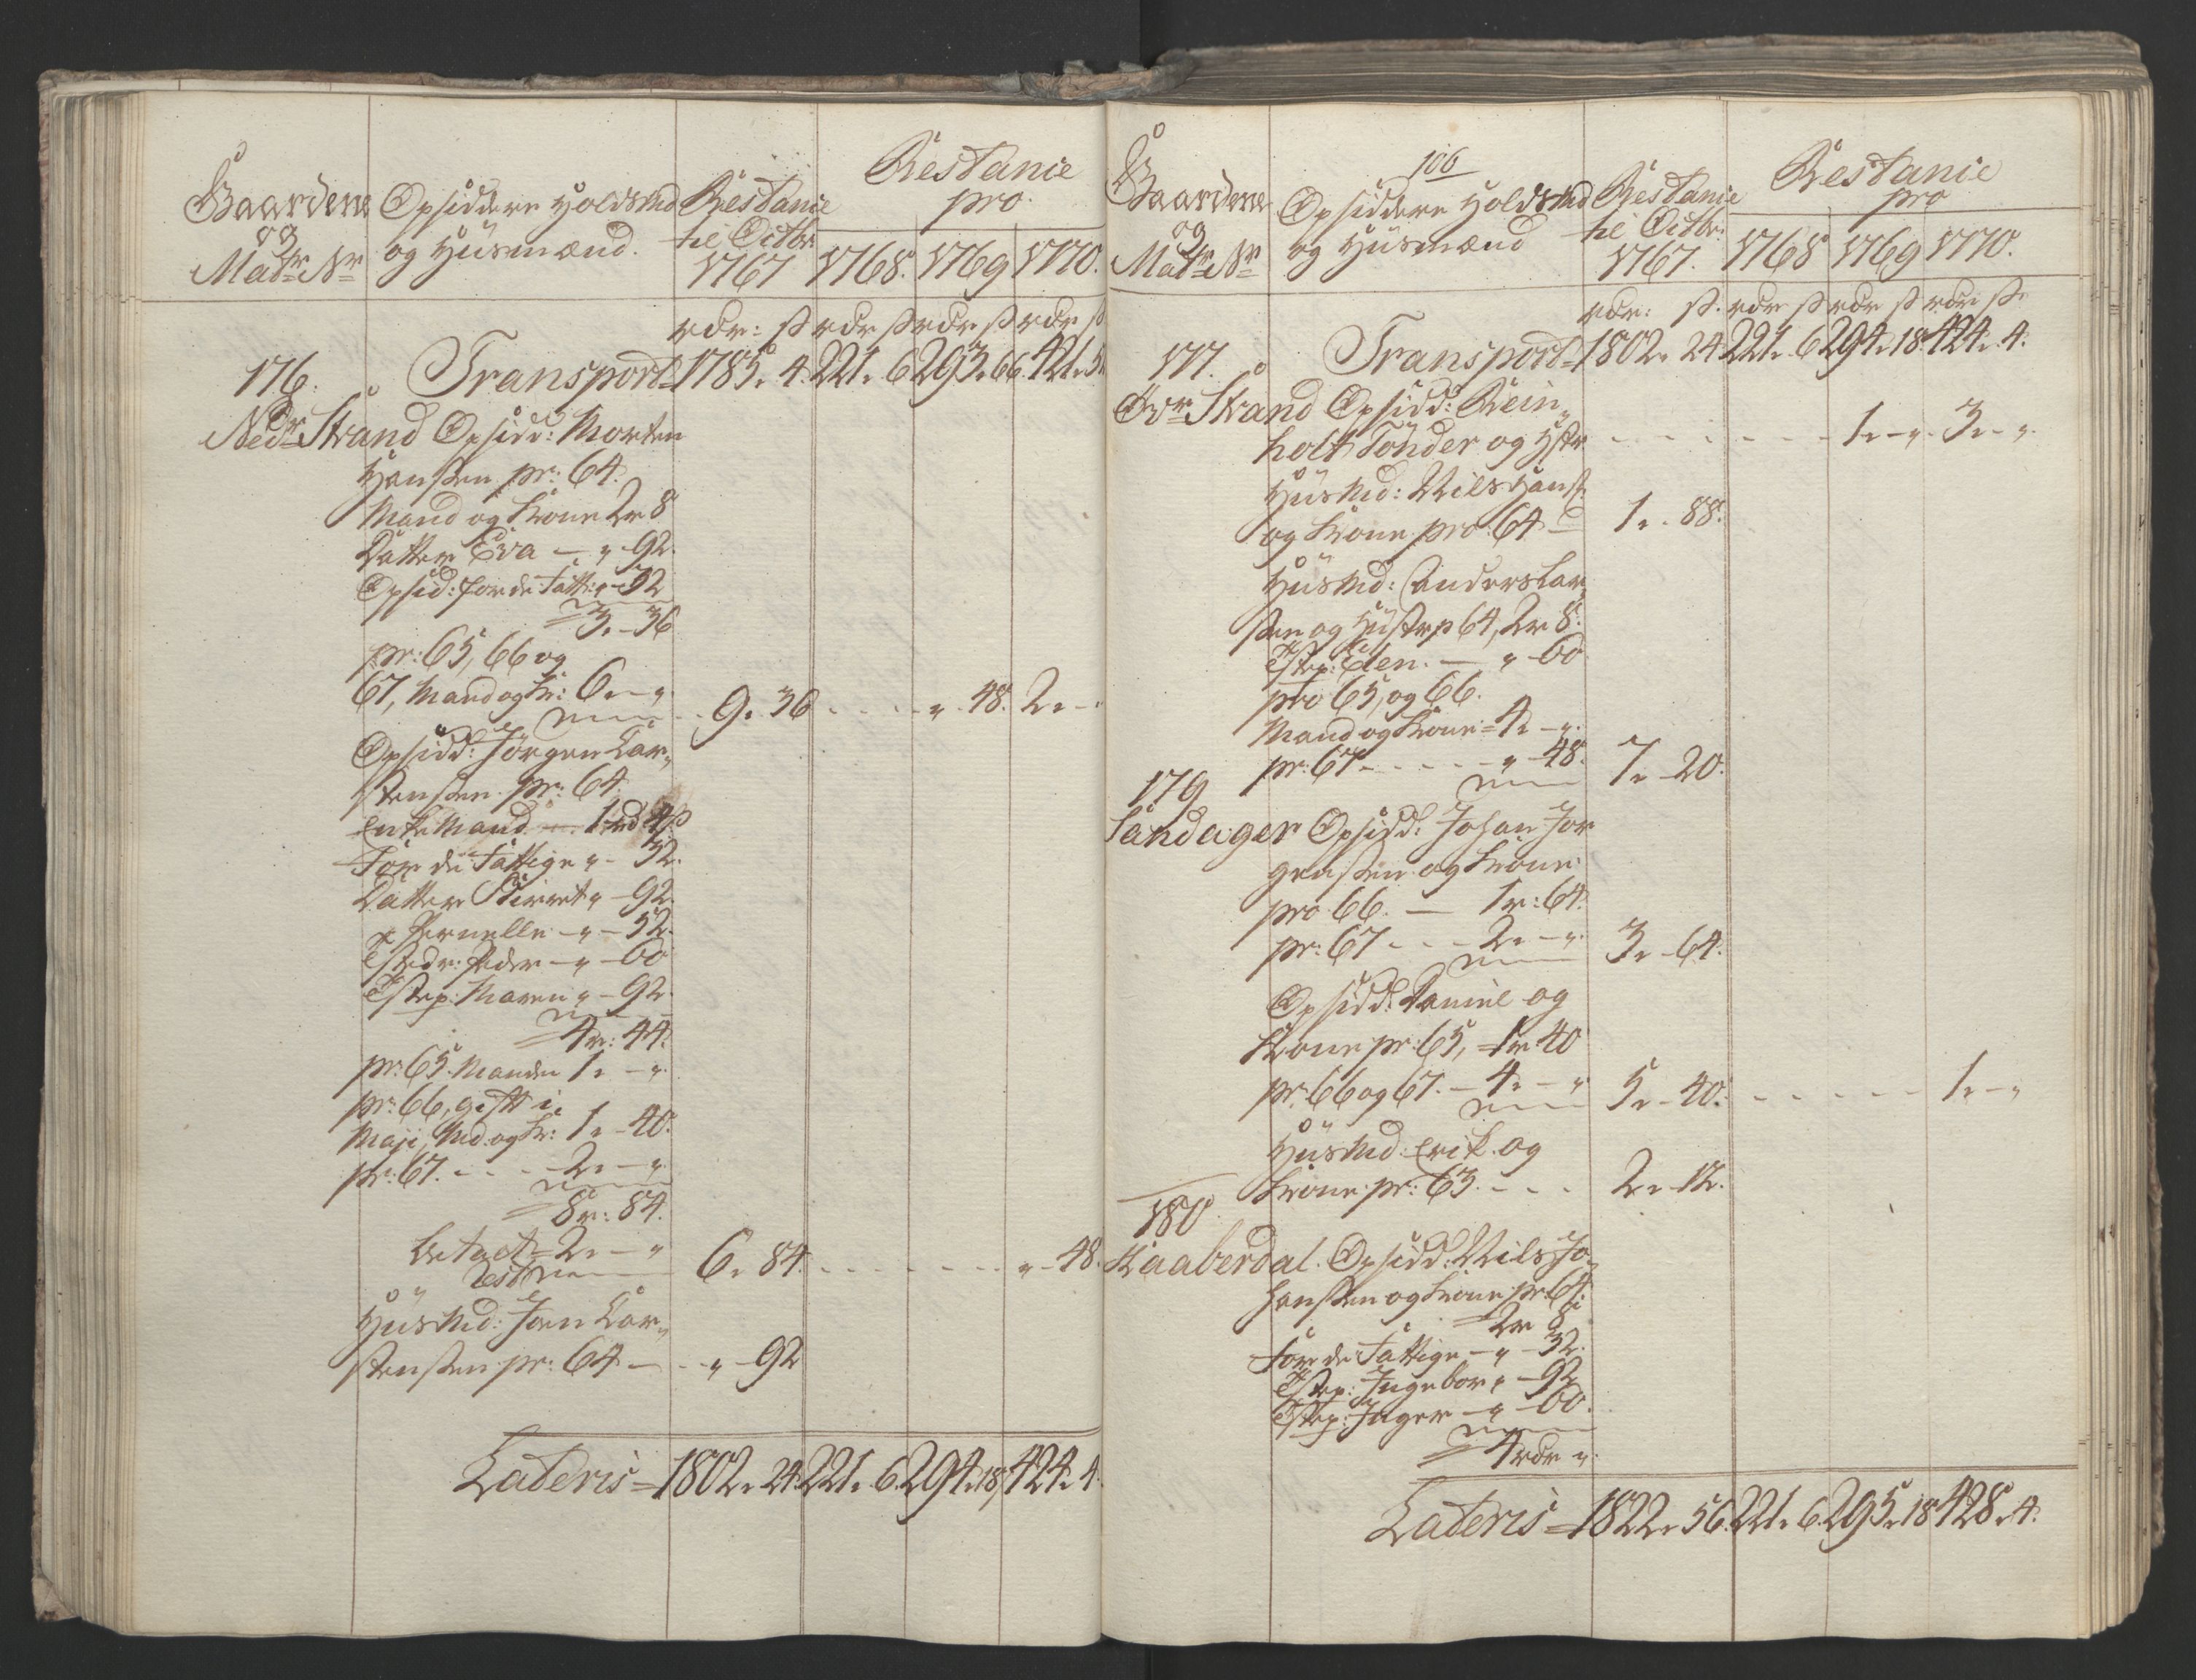 Gaardene
og
Matr Nr
Opsiddere Holdsmd
og Huusmænd.
Restance
til Octbr
1767
Restance
pro.
1768. 1769 1770.
rdr: ß rdr ß rdr ß rdr ß
176. Transport 1785. 4. 221. 6 293. 66. 421. 5
Nedr Strand Opsidd: Morten
Hanssen pr: 64.
Mand og Kone 2r 8
Datter Eva — „ 92.
Opsid: for de Fatt: „ 32
3. - 36
pr: 65, 66 og
67, Mand og K: 6. - „
9. 36 „ 48. 2. -
Opsidd: Jørgen Car„
stenssen pr: 64.
Enke Mand — 1 rd 4ß
For de Fattige „ - 32.
Datter Birret „ - 92.
Pernelle - „ - 52.
Peder - „ - 60
Tstep: Maren „ - 92.
4r: 44.
pr: 65. Manden 1. - „
pr: 66, gift i
Maji, Md. og K: 1. - 40.
pr: 67. - - - 2. - „
8r: 84.
betalt = 2. - „
Rest 6. 84. „ - 48.
Huusmd: Jan Car„
stenssen pr: 64 — „ - 92
Lateris = 1802. 24. 221. 6. 294. 18, 424. 4.
106
Gaardene
og
Matr Nr
Opsiddere Holdsmd
og Huusmænd
Restance
til Octbr:
1767.
Restance
pro
1768 1769 1770.
rdr: ß. rdr ß rdr ß rdr ß.
177. Transport 1802. 24. 221. 6 294. 18. 424. 4.
Øvr Strand Opsidd: Rein„
holt Tönder og Hstr - - - 1. - „. 3. - „.
Huusmd: Nils Hanß:
og Kone pro. 64 1. - 88.
Huusmd: Anders Lar„
sen og Hustr p 64, 2r 8.
Tstep: Elen. — „ - 60
pro 65, og 66.
Mand og Kone = 4. - „.
pr: 67 - - - „ - 48. 7. - 20.
179
Sandager Opsidd: Johan Jør
genssen og Kone
pro 66. — 1r: 64.
pr: 67 - - - 2. - „. 3. - 64.
Opsidd: Daniel og
Kone pr: 65, = 1r 40
pr: 66 og 67. - 4. - „ 5. - 40. - - - 1. - „
Huusmd: Erik og
Kone pr: 63. - - - 2. - 12.
180
Kaaberdal. Opsidd: Nils Jo„
hanssen og Kone pr 64:
2r 8
For de Fattige - „ - 32.
Tstep: Ingebor „ - 92
Tstep: Inger - „ - 60.
4 rdr „.
Lateris = 1822. 56. 221. 6. 295. 18 428. 4.